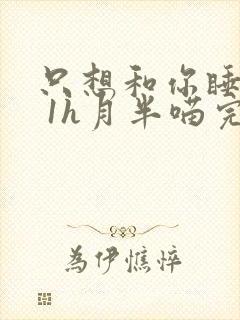 只想和你睡
1h月半喵完
为伊憔悴